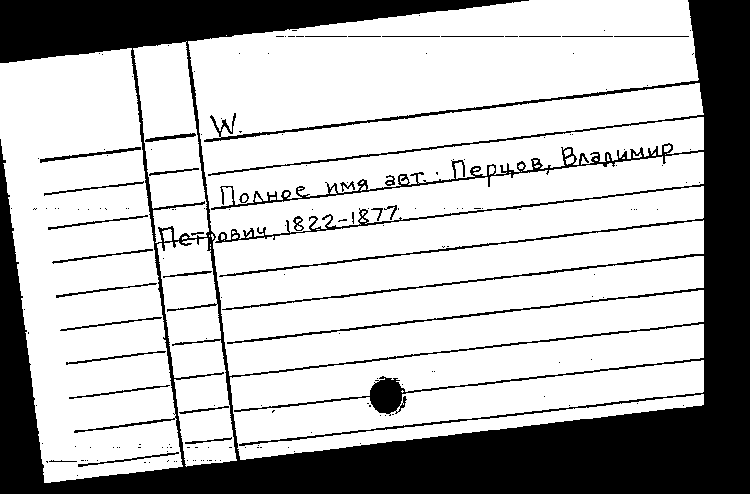 W.
Полное имя авт.: Перцов, Владимир
Петрович, 1822-1877.